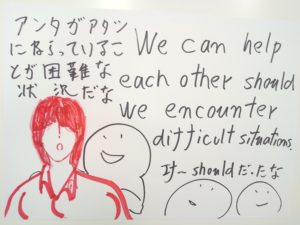 アンタがアタシ
になっているこ
とが困難な
状況だな
We can help
each other should
we encounter
difficult situations.
If~shouldだったな